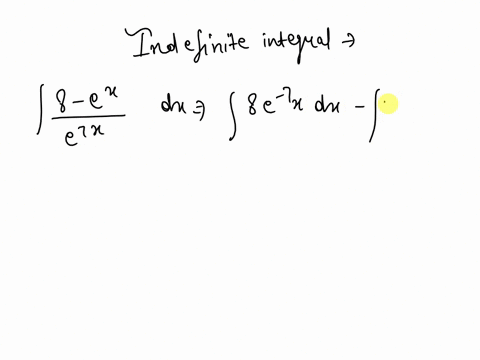 Indefinite integral →
∫ (8 - e^x)/(e^{7x}) dx ⇒ ∫ 8e^{-7x} dx - ∫